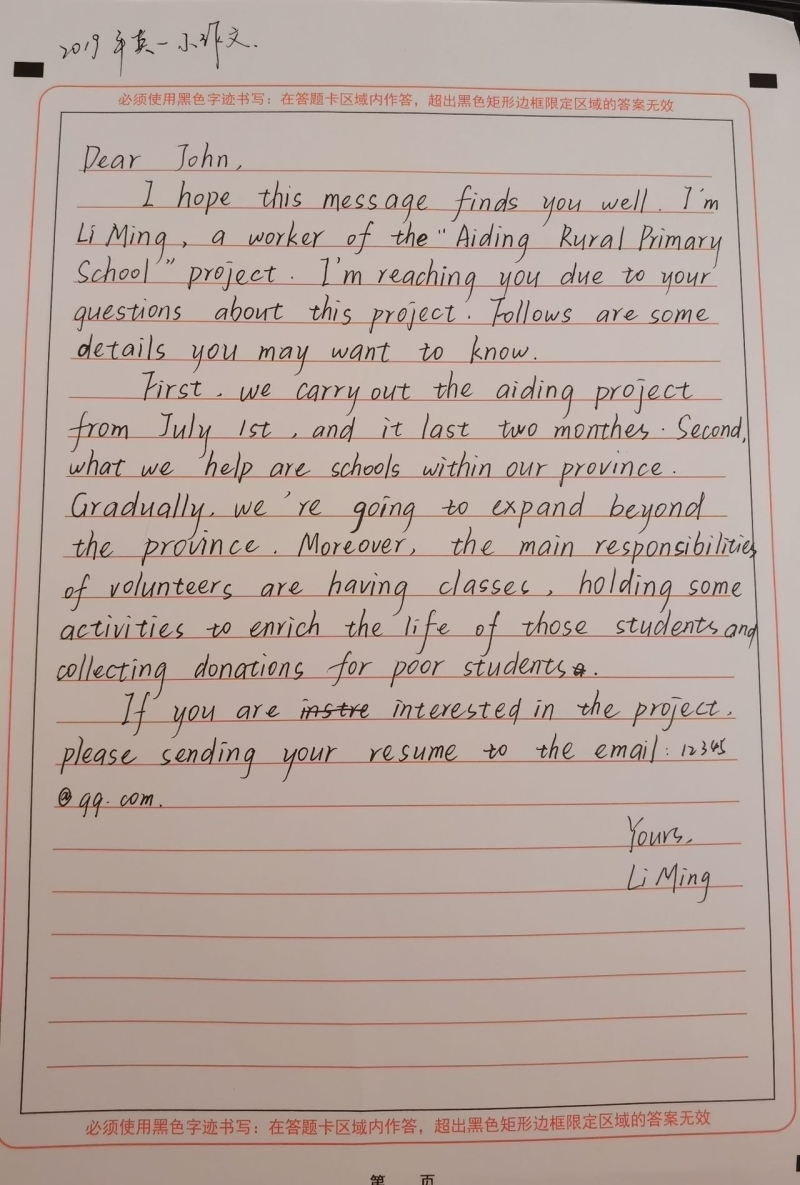 2019年英一小作文.
必须使用黑色字迹书写：在答题卡区域内作答，超出黑色矩形边框限定区域的答案无效
Dear John,
I hope this message finds you well. I'm
Li Ming, a worker of the "Aiding Rural Primary
School" project. I'm reaching you due to your
questions about this project. Follows are some
details you may want to know.
First, we carry out the aiding project
from July 1st, and it last two monthes. Second,
what we help are schools within our province.
Gradually, we're going to expand beyond
the province. Moreover, the main responsibilities
of volunteers are having classes, holding some
activities to enrich the life of those students and
collecting donations for poor students.
If you are instre interested in the project,
please sending your resume to the email: 12345
@qq.com.
Yours,
Li Ming
必须使用黑色字迹书写：在答题卡区域内作答，超出黑色矩形边框限定区域的答案无效
第 页